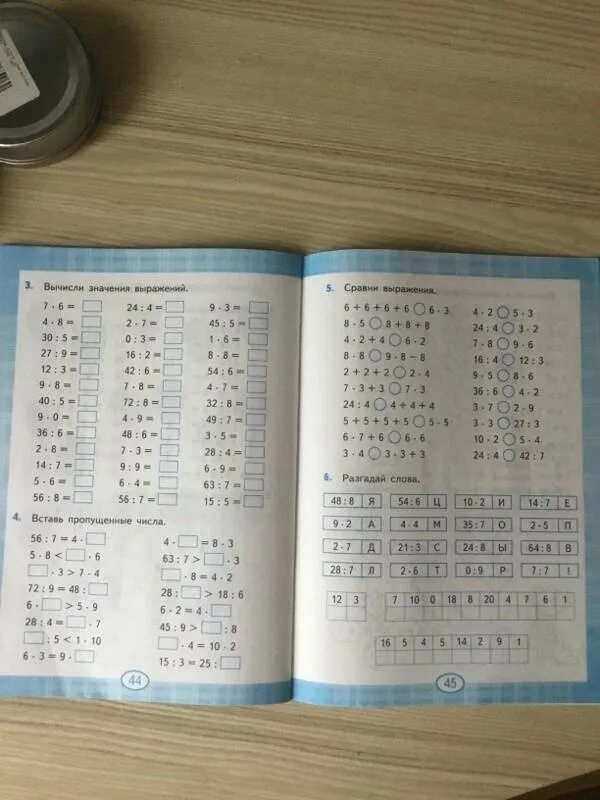 3. Вычисли значения выражений.
7 · 6 = 24 : 4 = 9 · 3 =
4 · 8 = 2 · 7 = 45 : 5 =
30 : 5 = 0 : 3 = 1 · 6 =
27 : 9 = 16 : 2 = 8 · 8 =
12 : 3 = 42 : 6 = 54 : 6 =
9 · 8 = 7 · 8 = 4 · 7 =
40 : 5 = 72 : 8 = 32 : 8 =
9 · 0 = 4 · 9 = 49 : 7 =
36 : 6 = 48 : 6 = 3 · 5 =
2 · 8 = 7 · 3 = 28 : 4 =
14 : 7 = 9 : 9 = 6 · 9 =
5 · 6 = 6 · 4 = 63 : 7 =
56 : 8 = 56 : 7 = 15 : 5 =
4. Вставь пропущенные числа.
56 : 7 = 4 · 4 · = 8 · 3
5 · 8 < · 6 63 : 7 > · 3
· 3 > 7 · 4 · 8 = 4 · 2
72 : 9 = 48 : 28 : > 18 : 6
6 · > 5 · 9 6 · 2 = 4 ·
28 : 4 = · 7 45 : 9 > : 8
: 5 < 1 · 10 · 4 = 10 · 2
6 · 3 = 9 · 15 : 3 = 25 :
44
5. Сравни выражения.
6 + 6 + 6 + 6 6 · 3 4 · 2 5 · 3
8 · 5 8 + 8 + 8 24 : 4 3 · 2
4 · 2 + 4 6 · 2 7 · 8 9 · 6
8 · 8 9 · 8 – 8 16 : 4 12 : 3
2 + 2 + 2 2 · 4 9 · 5 8 · 6
7 · 3 + 3 7 · 3 36 : 6 4 · 2
24 : 4 4 + 4 + 4 3 · 7 2 · 9
5 + 5 + 5 + 5 5 · 5 3 · 3 27 : 3
6 · 7 + 6 6 · 6 10 · 2 5 · 4
3 · 4 3 · 3 + 3 24 : 4 42 : 7
6. Разгадай слова.
48 : 8 Я 54 : 6 Ц 10 · 2 И 14 : 7 Е
9 · 2 А 4 · 4 М 35 : 7 О 2 · 5 П
2 · 7 Д 21 : 3 С 24 : 8 Ы 64 : 8 В
28 : 7 Л 2 · 6 Т 0 : 9 Р 7 : 7 !
12 3 7 10 0 18 8 20 4 7 6 1
16 5 4 5 14 2 9 1
45